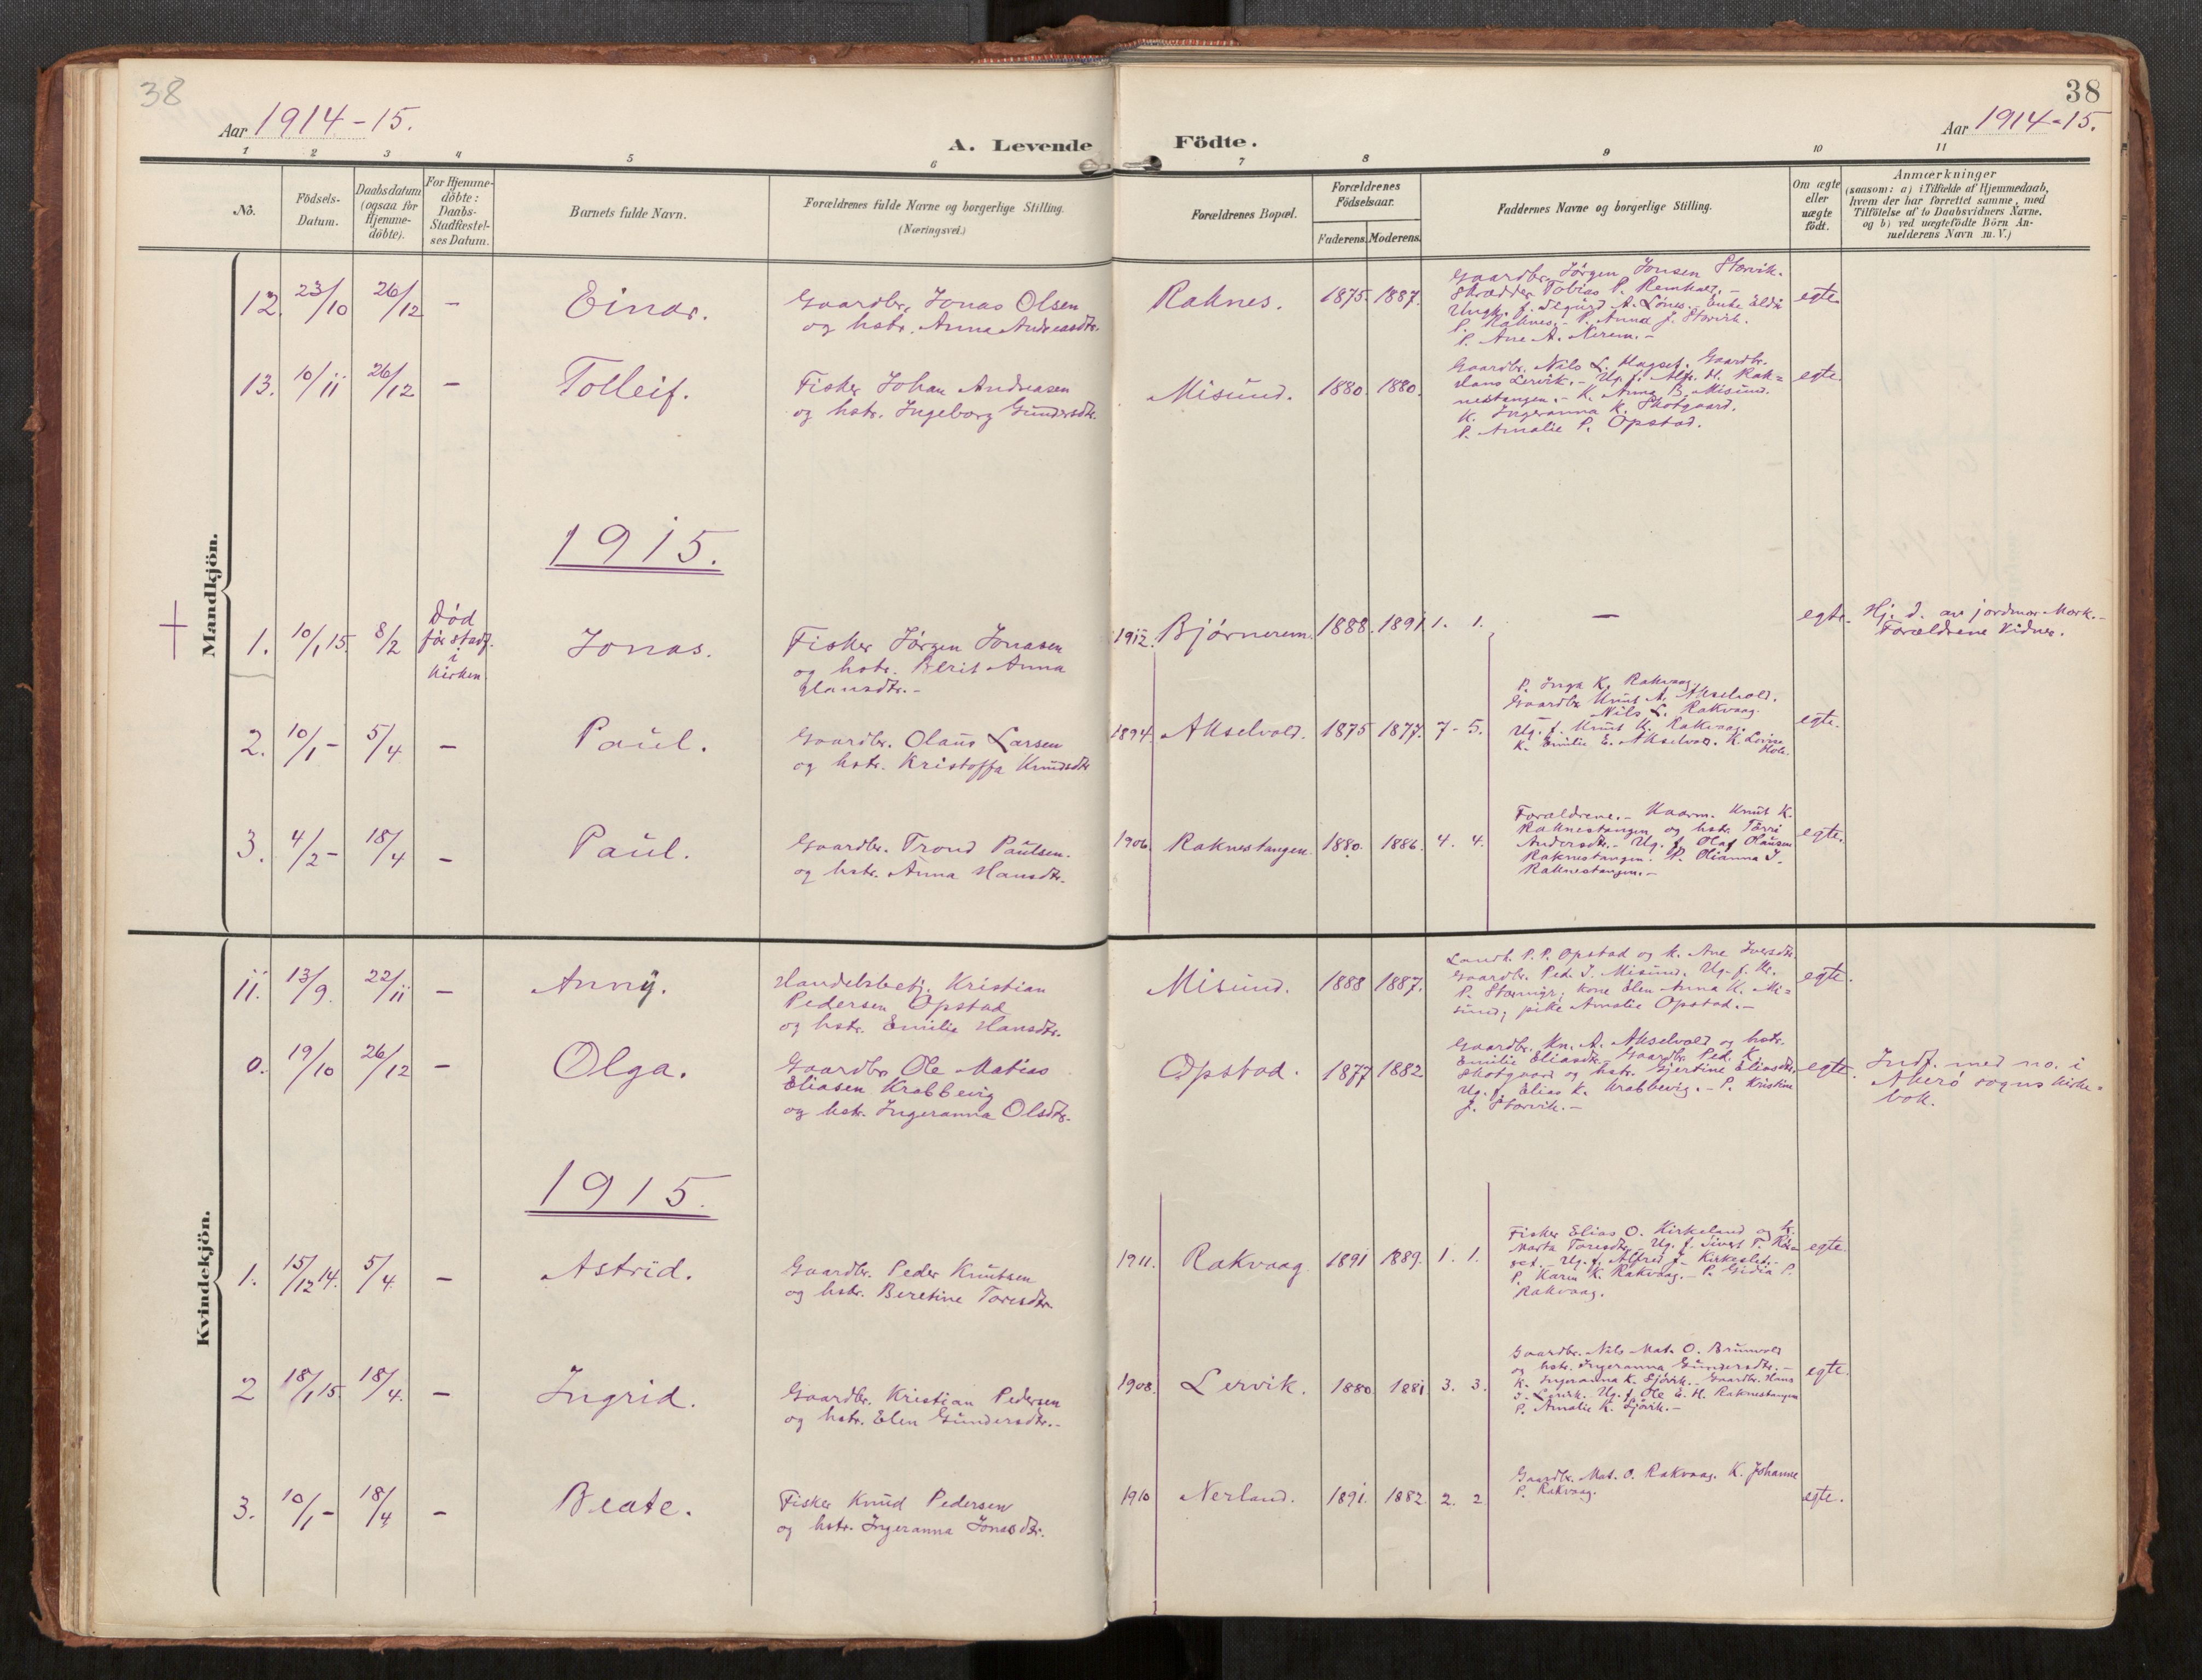 38
38
Aar 1914-15.
A. Levende Födte.
Aar 1914-15.
1 2 3 4 5 6 7 8 9 10 11
No.
Födsels-
Datum.
Daabsdatum
(ogsaa for
Hjemme-
döbte).
For Hjemme-
döbte:
Daabs-
Stadfæstel-
ses Datum.
Barnets fulde Navn.
Forældrenes fulde Navne og borgerlige Stilling.
(Næringsvei.)
Forældrenes Bopæl.
Forældrenes
Födselsaar.
Faderens. Moderens.
Faddernes Navne og borgerlige Stilling.
Om ægte
eller
uægte
födt.
Anmærkninger
(saasom: a) i Tilfælde af Hjemmedaab,
hvem der har forrettet samme, med
Tilföielse af to Daabsvidners Navne,
og b) ved uægtefödte Börn An-
melderens Navn m. V.)
Mandkjön.
12. 23/10 26/12 - Einar.
Gaardbr. Jonas Olsen
og hstr. Anna Andreasdtr.
Raknes. 1875. 1887.
Gaardbr. Jörgen Jonsen Storvik.
Skrædder Tobias P. Remkær. -
Ungk. f. Sigurd A. Lönes. - Enke Elda
P. Raknes. - P. Anna J. Storvik.
P. Ane A. Nerem. -
egte.
13. 10/11 26/12 - Tolleif.
Fisker Johan Andreasen
og hstr. Ingeborg Gundersdtr.
Misund. 1880. 1880.
Gaardbr. Nils L. Hagset. Gaardbr.
Hans Lervik. - Ug. f. Alfr. H. Rak=
nestangen. - K. Anna B. Misund.
K. Ingeranna K. Skotgaard.
P. Amalie P. Opstad.
egte.
1915.
1. 10/1 15. 8/2
Död
før stadf.
i
Kirken
Jonas.
Fisker Jörgen Jonasen
og hstr. Berit Anna
Hansdtr. -
1912. Bjørnerem. 1888. 1891 1. 1. - egte.
Hj. d. av jordmor Mork. -
Forældrene Vidner.
2. 10/1 - 5/4 - Paul.
Gaardbr. Olaus Larsen
og hstr. Kristoffa Knudsdtr.
1894. Akselvold. 1875 1877. 7 - 5.
P. Inga K. Rakvaag.
Gaardbr. Knut A. Akselvold.
- Nils L. Rakvaag.
Ug. f. Knut K. Rakvaag.
K. Emilie E. Akselvold. K. Lovise
Hole.
egte.
3. 4/2 - 18/4 - Paul.
Gaardbr. Trond Paulsen.
og hstr. Anna Hansdtr.
1906. Raknestangen. 1880. 1886. 4. 4.
Forældrene. - Kaarm. Knut K.
Raknestangen og hstr.
Andersdtr. - Ug. f. Olaf Olausen
Raknestangen. P. Olianna I.
Raknestangen. -
egte.
Kvindekjön.
11. 13/9. 22/11 - Anny.
Handelsbetj. Kristian
Pedersen Opstad
og hstr. Emilie Hansdtr.
Misund. 1888 1887.
Landh. P. P. Opstad og k. Ane Iversdtr.
Gaardbr. Ped. I. Misund. Ug. f. Kr.
P. ; kone Elen Anna K. Mi=
sund; pike Amalie Opstad. -
egte.
0. 19/10 26/12 - Olga.
Gaardbr. Ole Matias
Eliasen Krabbevig
og hstr. Ingeranna Olsdtr.
Opstad. 1877 1882
Gaardbr. Kn. A. Akselvold og hstr.
Emilie Eliasdtr. - Gaardbr. Ped. K.
Skotgaard og hstr. Gjertine Eliasdtr.
Ug. f. Elias K. Krabbevig. - P. Kristine
J. Storvik. -
egte.
Indf. med no. i
Akerö sogns Kirke=
bok.
1915.
1. 15/12 14. 5/4 - Astrid.
Gaardbr. Peder Knutsen
og hstr. Beretine Toresdtr.
1911. Rakvaag. 1891 1889. 1. 1.
Fisker Elias O. Kirkeland og k.
Marta Toresdtr. Ug. f. Sivert T.
- Ug. f. Alfred J. Kirkeslet. -
P. Karen K. Rakvaag. - P. Gidia P.
Rakvaag.
egte.
2 18/1 15. 18/4. - Ingrid.
Gaardbr. Kristian Pedersen
og hstr. Elen Gundersdtr. -
1908. Lervik. 1880. 1881 3. 3.
Gaardbr. Nils Mat. O. Brunvold
og hstr. Ingeranna Gundersdtr. -
K. Ingeranna K. Sjövik. - Gaardbr. Hans
J. Lervik. Ug. f. Ole E. H. Raknestangen
P. Amalie K. Sjövik. -
egte.
3. 10/1 - 18/4 - Beate.
Fisker Knud Pedersen
og hstr. Ingeranna Jonasdtr.
1910 Nerland. 1891. 1882. 2. 2.
Gaardbr. Mat. O. Rakvaag. K. Johanne
P. Rakvaag.
egte.